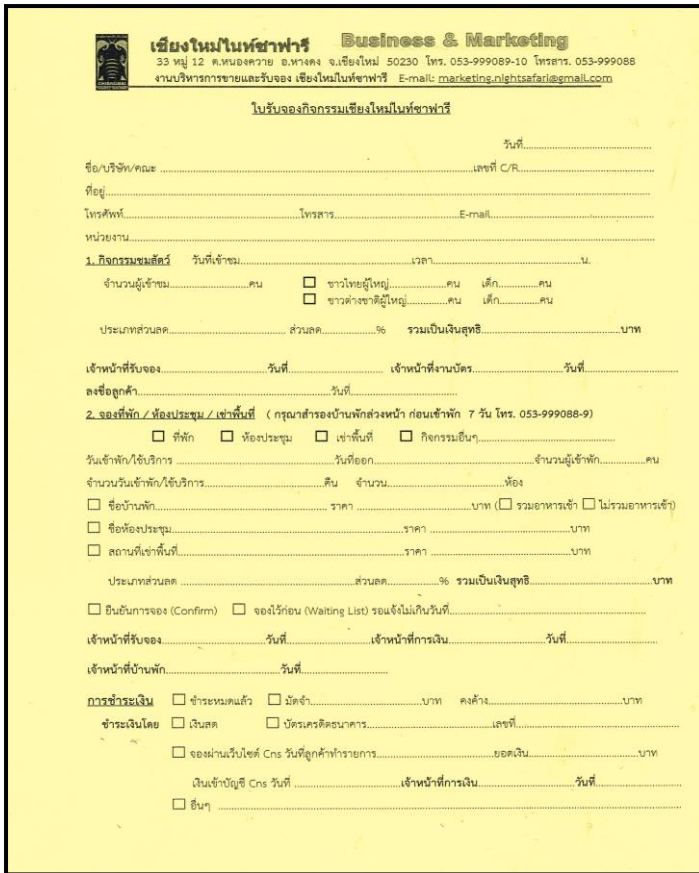 เชียงใหม่ไนท์ซาฟารี Business & Marketing
33 หมู่ 12 ต.หนองควาย อ.หางดง จ.เชียงใหม่ 50230 โทร. 053-999089-10 โทรสาร. 053-999088
งานบริหารการขายและรับจอง เชียงใหม่ไนท์ซาฟารี E-mail: marketing.nightsafari@gmail.com
CHIANGMAI
NIGHT SAFARI
ใบรับจองกิจกรรมเชียงใหม่ไนท์ซาฟารี
วันที่
ชื่อ/บริษัท/คณะ เลขที่ C/R
ที่อยู่
โทรศัพท์ โทรสาร E-mail
หน่วยงาน
1. กิจกรรมชมสัตว์ วันที่เข้าชม เวลา น.
จำนวนผู้เข้าชม คน ☐ ชาวไทยผู้ใหญ่ คน เด็ก คน
☐ ชาวต่างชาติผู้ใหญ่ คน เด็ก คน
ประเภทส่วนลด ส่วนลด % รวมเป็นเงินสุทธิ บาท
เจ้าหน้าที่รับจอง วันที่ เจ้าหน้าที่งานบัตร วันที่
ลงชื่อลูกค้า วันที่
2. จองที่พัก / ห้องประชุม / เช่าพื้นที่ ( กรุณาสำรองบ้านพักล่วงหน้า ก่อนเข้าพัก 7 วัน โทร. 053-999088-9)
☐ ที่พัก ☐ ห้องประชุม ☐ เช่าพื้นที่ ☐ กิจกรรมอื่นๆ
วันเข้าพัก/ใช้บริการ วันที่ออก จำนวนผู้เข้าพัก คน
จำนวนวันเข้าพัก/ใช้บริการ คืน จำนวน ห้อง
☐ ชื่อบ้านพัก ราคา บาท (☐ รวมอาหารเช้า ☐ ไม่รวมอาหารเช้า)
☐ ชื่อห้องประชุม ราคา บาท
☐ สถานที่เช่าพื้นที่ ราคา บาท
ประเภทส่วนลด ส่วนลด % รวมเป็นเงินสุทธิ บาท
☐ ยืนยันการจอง (Confirm) ☐ จองไว้ก่อน (Waiting List) รอแจ้งไม่เกินวันที่
เจ้าหน้าที่รับจอง วันที่ เจ้าหน้าที่การเงิน วันที่
เจ้าหน้าที่บ้านพัก วันที่
การชำระเงิน ☐ ชำระหมดแล้ว ☐ มัดจำ บาท คงค้าง บาท
ชำระเงินโดย ☐ เงินสด ☐ บัตรเครดิตธนาคาร เลขที่
☐ จองผ่านเว็บไซต์ Cns วันที่ลูกค้าทำรายการ ยอดเงิน บาท
เงินเข้าบัญชี Cns วันที่ เจ้าหน้าที่การเงิน วันที่
☐ อื่นๆ